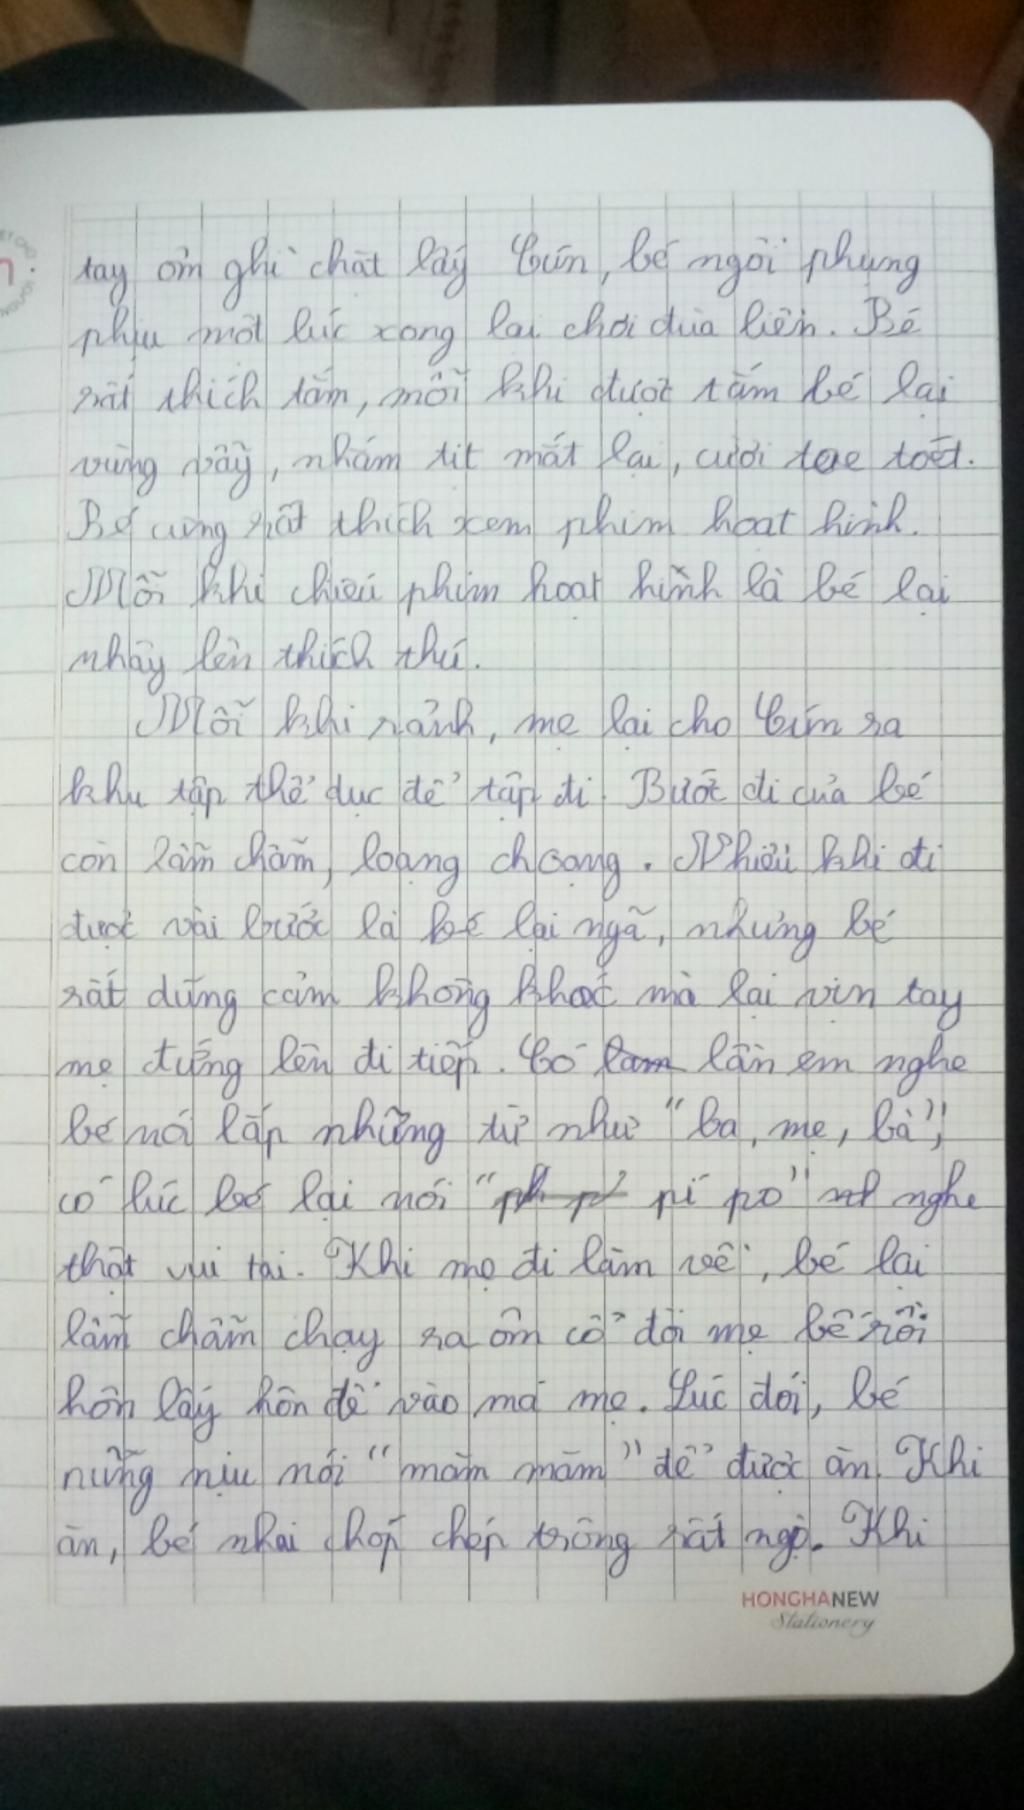 tay ôm ghì chặt lấy Cún, bé ngồi phụng
phịu một lúc xong lại chơi đùa liền. Bé
rất thích tắm, mỗi khi được tắm bé lại
vùng vẫy, nhắm tịt mắt lại, cười toe toét.
Bé cũng rất thích xem phim hoạt hình.
Mỗi khi chiếu phim hoạt hình là bé lại
nhảy lên thích thú.
Mỗi khi rảnh, mẹ lại cho Cún ra
khu tập thể dục để tập đi. Bước đi của bé
còn lẫm chẫm, loạng choạng. Nhiều khi đi
được vài bước là bé lại ngã, nhưng bé
rất dũng cảm không khóc mà lại vịn tay
mẹ đứng lên đi tiếp. Có lần em nghe
bé nói lắp những từ như "ba, mẹ, bà",
có lúc bé lại nói "pí po" nghe
thật vui tai. Khi mẹ đi làm về, bé lại
lẫm chẫm chạy ra ôm cổ đòi mẹ bế rồi
hôn lấy hôn để vào má mẹ. Lúc đói, bé
nũng nịu nói "măm măm" để được ăn. Khi
ăn, bé nhai chóp chép trông rất ngộ. Khi
HONGHANEW
Stationery